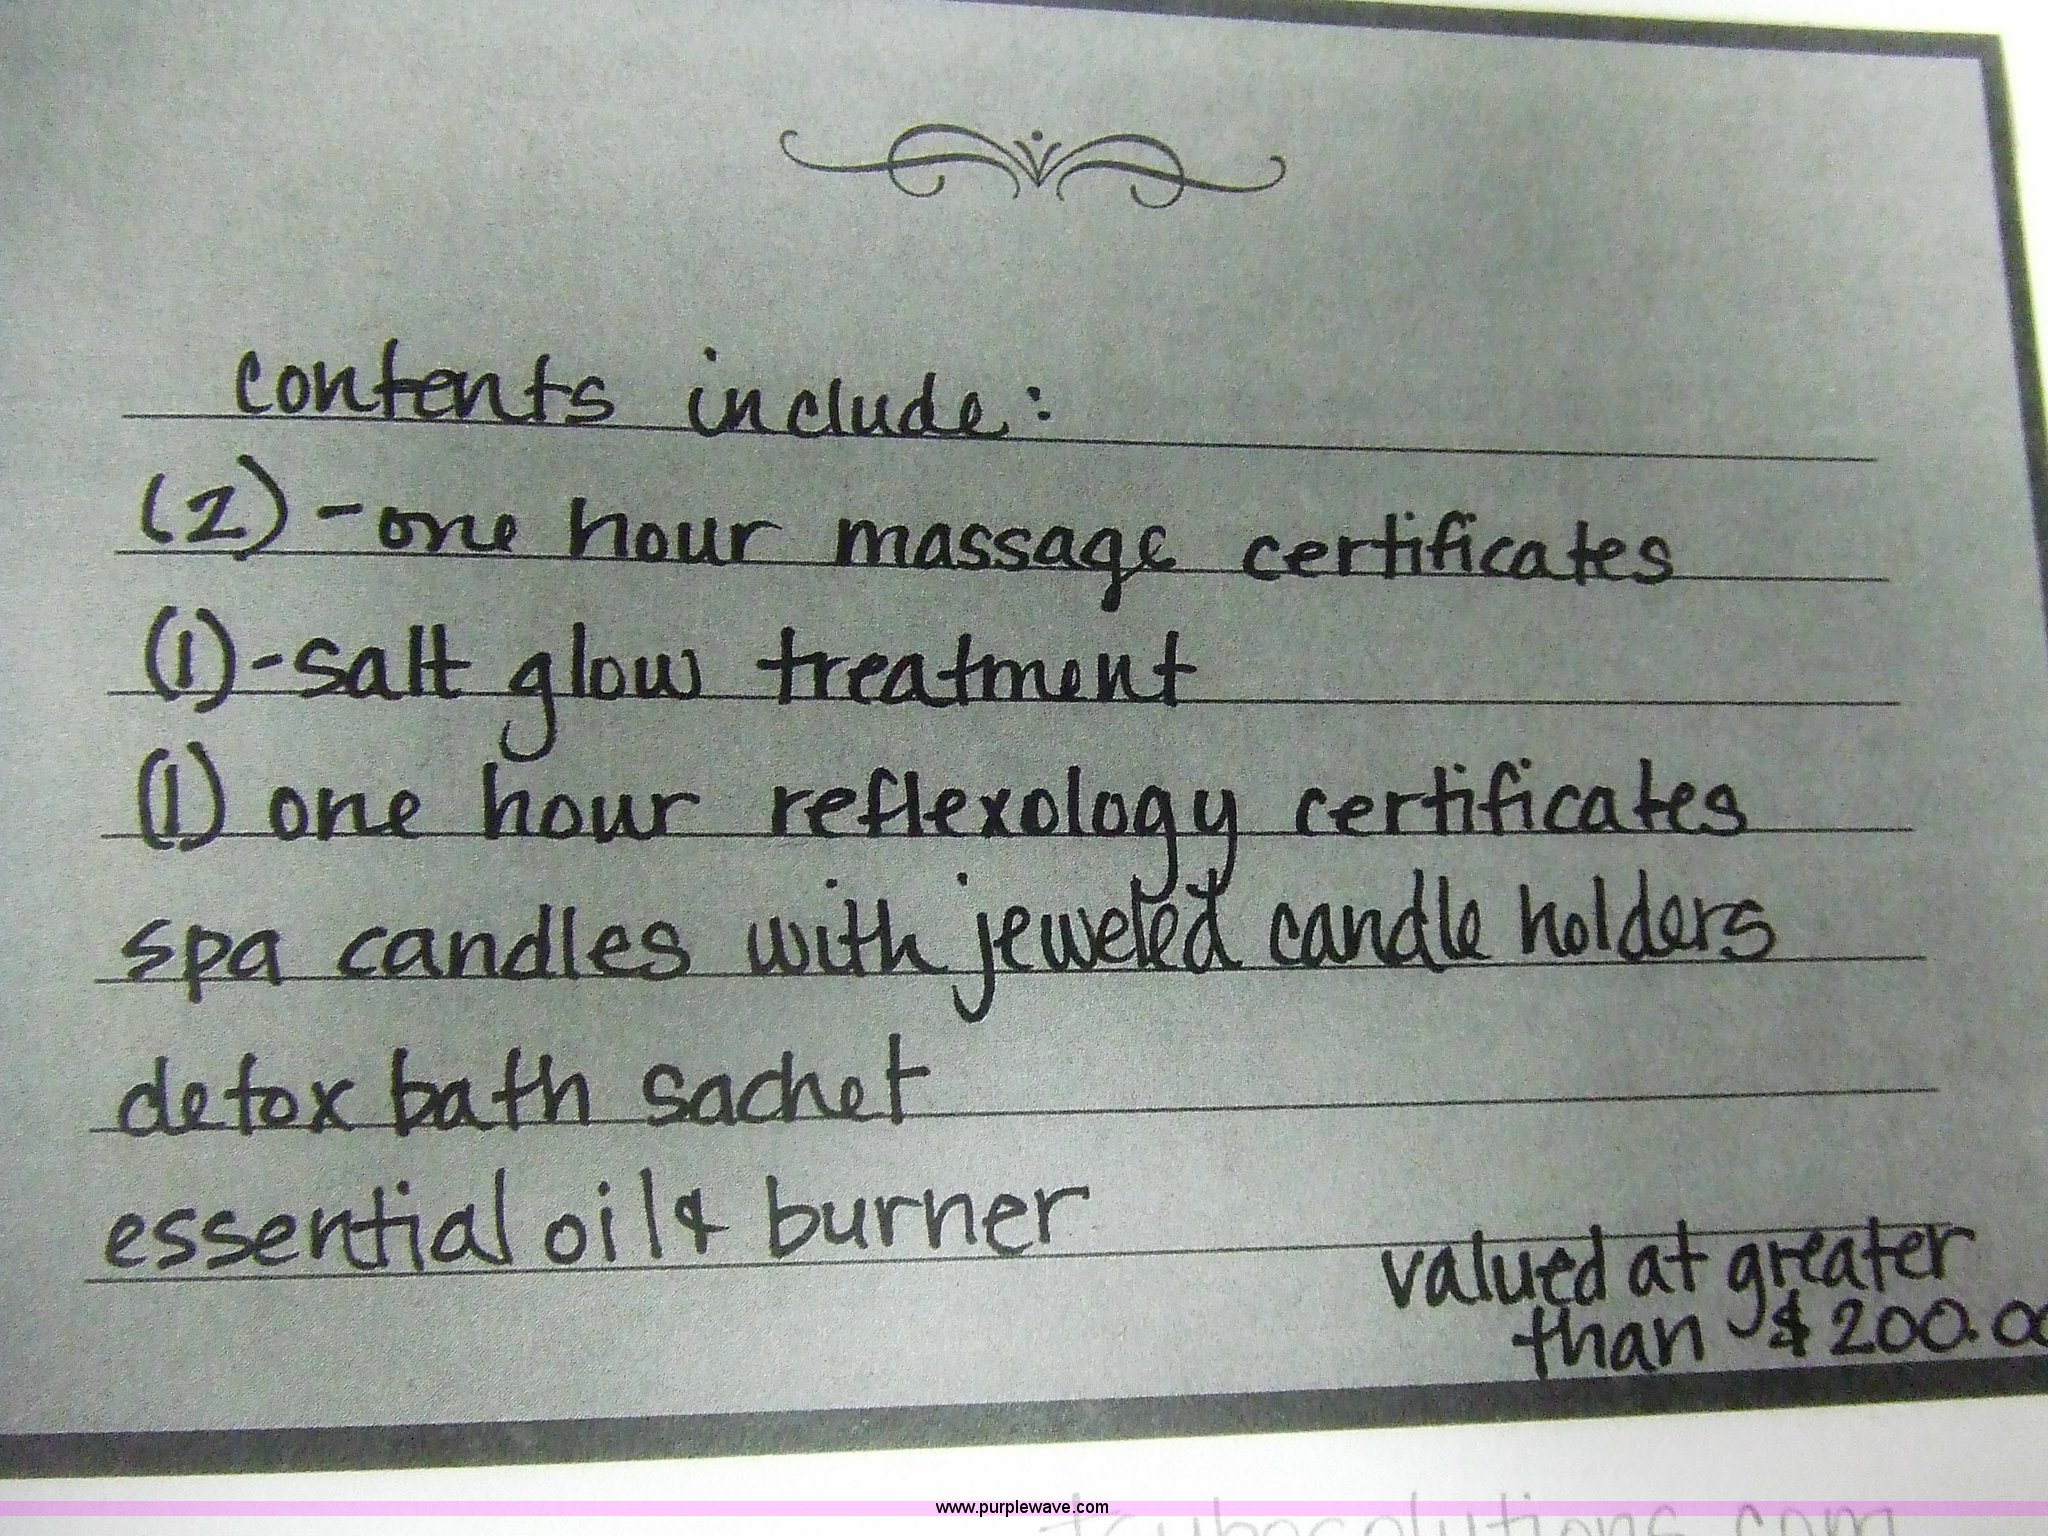 contents include:
(2)-one hour massage certificates
(1)-salt glow treatment
(1) one hour reflexology certificates
spa candles with jeweled candle holders
detox bath sachet
essential oil & burner
valued at greater
than $200.00
www.purplewave.com